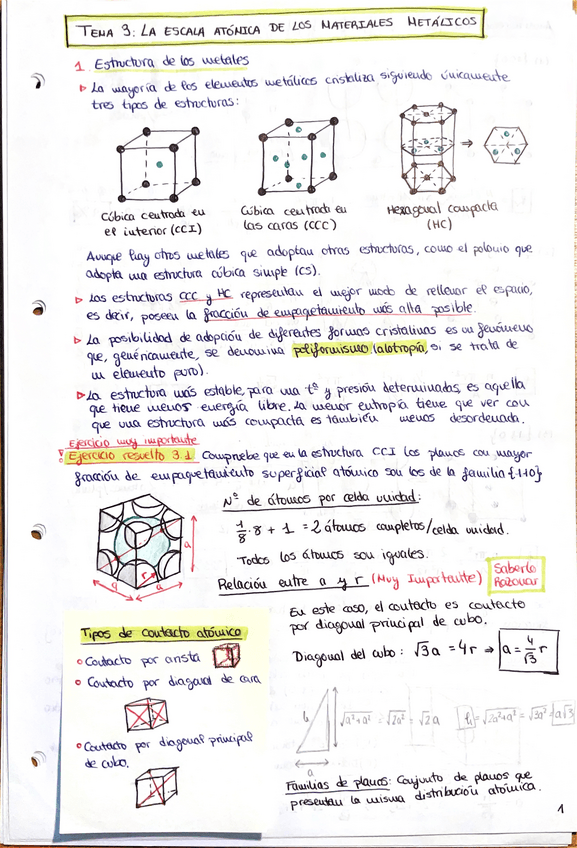 TEMA 3: LA ESCALA ATÓMICA DE LOS MATERIALES METÁLICOS
1. Estructura de los metales
▷ La mayoría de los elementos metálicos cristaliza siguiendo únicamente
tres tipos de estructuras:
Cúbica centrada en
el interior (CCI)
Cúbica centrada en
las caras (CCC)
Hexagonal compacta
(HC)
Aunque hay otros metales que adoptan otras estructuras, como el polonio que
adopta una estructura cúbica simple (CS).
▷ Las estructuras CCC y HC representan el mejor modo de rellenar el espacio,
es decir, poseen la fracción de empaquetamiento más alta posible.
▷ La posibilidad de adopción de diferentes formas cristalinas es un fenómeno
que, genéricamente, se denomina poliformismo (alotropía, si se trata de
un elemento puro).
▷ La estructura más estable, para una tª y presión determinadas, es aquella
que tiene menos energía libre. La menor entropía tiene que ver con
que una estructura más compacta es también menos desordenada.
Ejercicio muy importante
Ejercicio resuelto 3.1 Compruebe que en la estructura CCI los planos con mayor
fracción de empaquetamiento superficial atómico son los de la familia {110}
Nº de átomos por celda unidad:
1/8 · 8 + 1 = 2 átomos completos/celda unidad.
Todos los átomos son iguales.
Relación entre a y r (Muy Importante)
Saberlo
Razonar
a
a
a
r
En este caso, el contacto es contacto
por diagonal principal de cubo.
Diagonal del cubo: √3a = 4r ⇒ a = 4/√3 r
Tipos de contacto atómico
Contacto por arista
Contacto por diagonal de cara
Contacto por diagonal principal
de cubo.
√a²+a² = √2a² = √2 a
= √2a²+a² = √3a² = a√3
a
Familias de planos: Conjunto de planos que
presentan la misma distribución atómica.
1